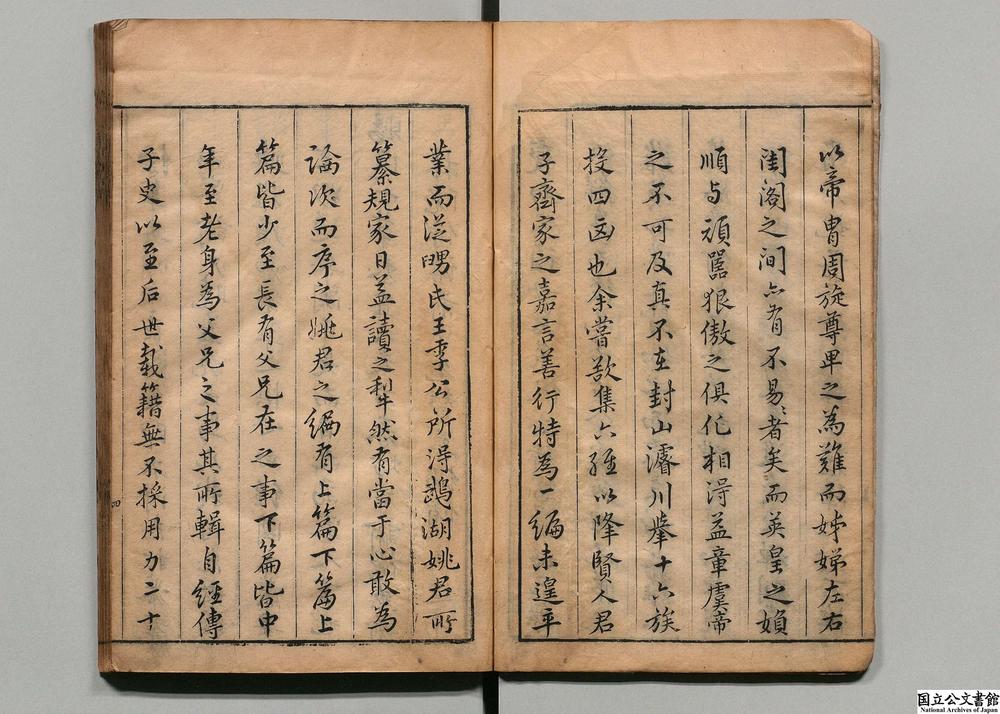 以帝胄周旋尊卑之為難而姊娣左右
閨閣之间亦有不易〻者矣而英皇之嬪
順与頑嚚狠傲之俱化相淂益章虞帝
之不可及真不在封山濬川舉十六族
投四凶也余嘗欲集六經以降賢人君
子齊家之嘉言善行特為一編未遑卒
業而從甥民王季公所淂鵡湖姚君所
纂規家日益讀之犁然有當于心敢為
論次而序之姚君之編有上篇下篇上
篇皆少至長有父兄在之事下篇皆中
年至老身為父兄之事其所輯自經傳
子史以至后世載籍無不採用力二十
四
国立公文書館
National Archives of Japan